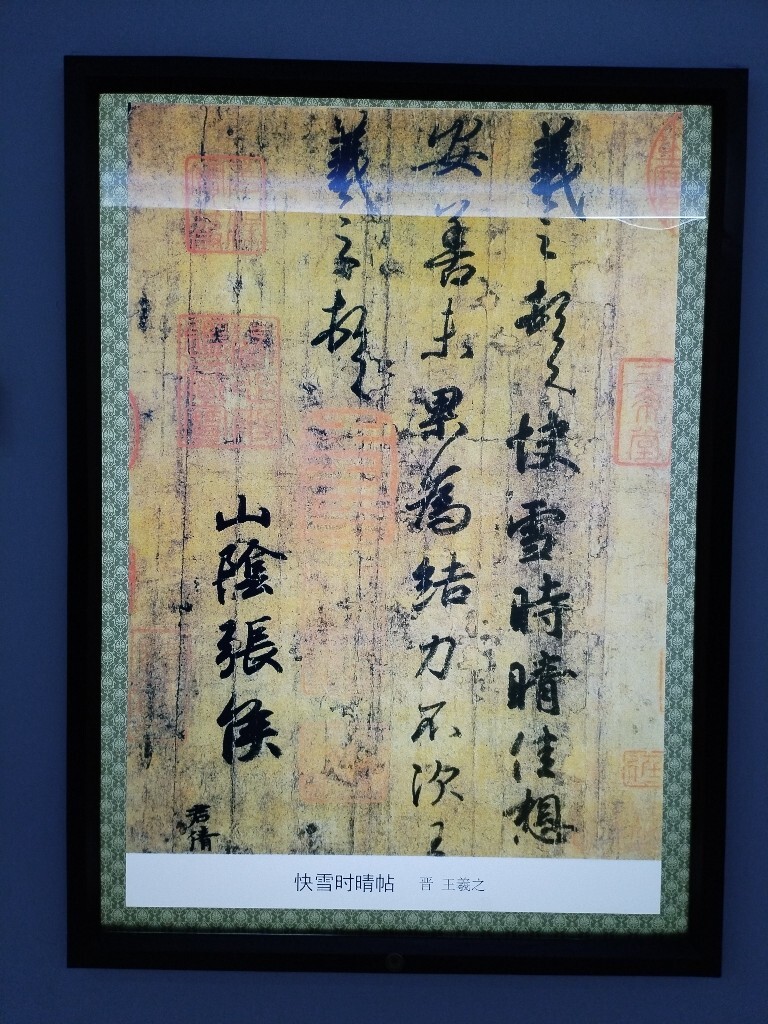 羲之頓首快雪時晴佳想
安善未果為結力不次王
羲之頓首
山陰張侯
君倩
三希堂
快雪时晴帖 晋 王羲之